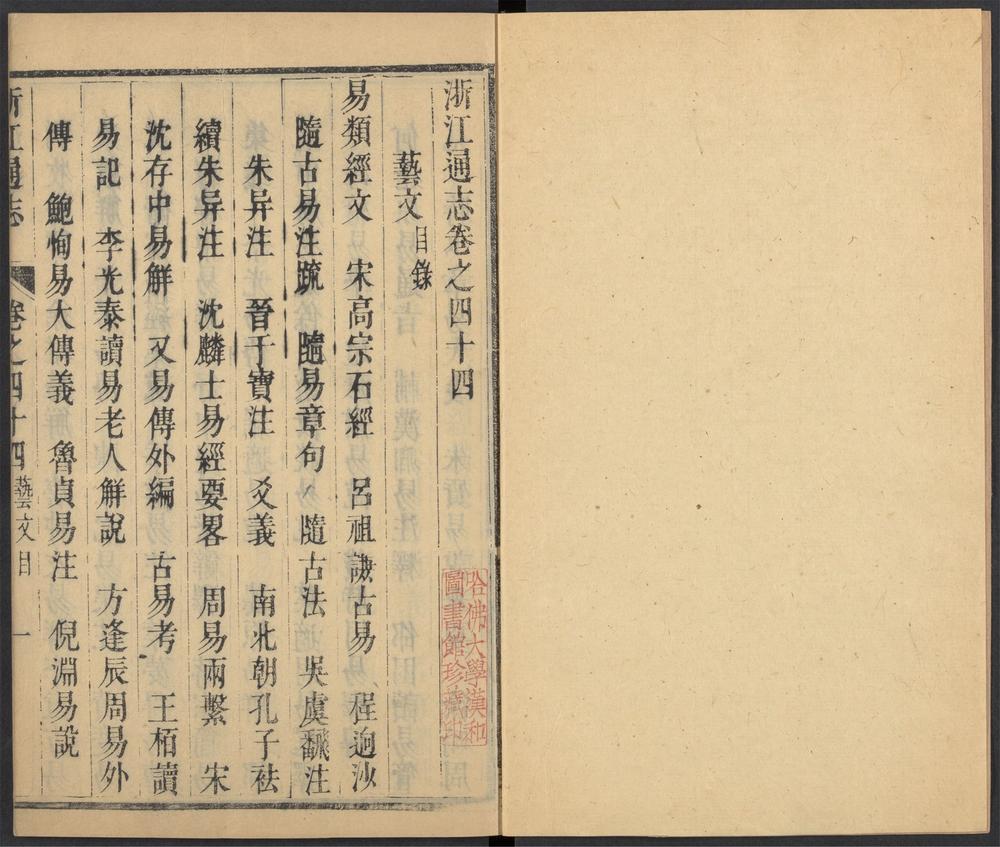 浙江通志卷之四十四
藝文目錄
易類經文 宋高宗石經 呂祖謙古易 程迥沙
隨古易注䟽 隨易章句 隨古法 吳虞翻注
朱异注 晉干寶注 爻義 南北朝孔子袪
續朱异注 沈麟士易經要畧 周易兩繫 宋
沈存中易觧 又易傳外編 古易考 王栢讀
易記 李光泰讀易老人觧說 方逢辰周易外
傳 鮑恂易大傳義 魯貞易注 倪淵易說
浙江通志 卷之四十四 藝文目 一
哈佛大學漢和
圖書館珍藏印